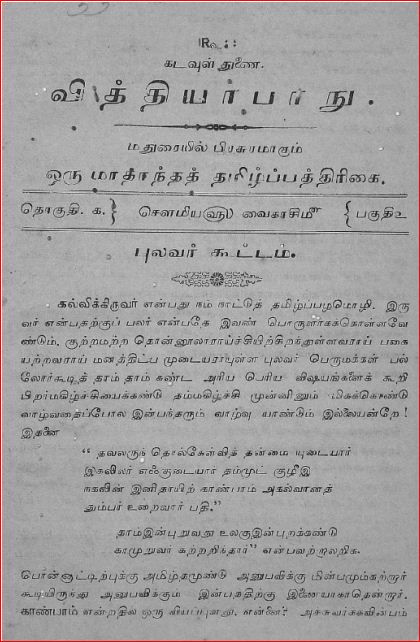 கடவுள் துணை.
வித்தியர்பாநு.
மதுரையில் பிரசுரமாகும்
ஒரு மாதாந்தத் தமிழ்ப்பத்திரிகை.
தொகுதி. க. } சௌமியளு வைகாசிமீ { பகுதிஉ
புலவர் கூட்டம்.
கல்விக்கிருவர் என்பது நம் நாட்டுத் தமிழ்ப்பழமொழி. இரு
வர் என்பதற்குப் பலர் என்பதே இவண் பொருளாகக்கொள்ளவே
ண்டும். குற்றமற்ற தொன்னூலாராய்ச்சியிற்சிறந்துள்ளவராய் பகை
யற்றவராய் மனத்திட்ப முடையராயுள்ள புலவர் பெருமக்கள் பல்
லோர்கூடித் தாம் தாம் கண்ட அரிய பெரிய விஷயங்களைக் கூறி
பிறர்மகிழ்ச்சியைக்கண்டு தம்மகிழ்ச்சி முன்னினும் மிகக்கொண்டு
வாழ்வதைப்போல இன்பந்தரும் வாழ்வு யாண்டும் இல்லையன்றே!
இதனை
" தவலருந் தொல்கேள்வித் தன்மை யுடையார்
இகலிலர் எஃகுடையார் தம்முட் குழீஇ
நகலின் இனிதாயிற் காண்பாம் அகல்வானத்
தும்பர் உறைவார் பதி."
தாம்இன்புறுவது உலகுஇன்புறக்கண்டு
காமுறுவர் கற்றறிந்தார்" என்பவற்றாலறிக.
பொன்னாட்டிற்புக்கு அமிழ்தமுண்டு அனுபவிக்கு மின்பமும்கற்றார்
கூடியிருந்து அனுபவிக்கும் இன்பத்திற்கு இணையாகாதென்றார்.
காண்பாம் என்றதில் ஒரு வியப்புளது. என்னை? அச்சுவர்க்கவின்பம்